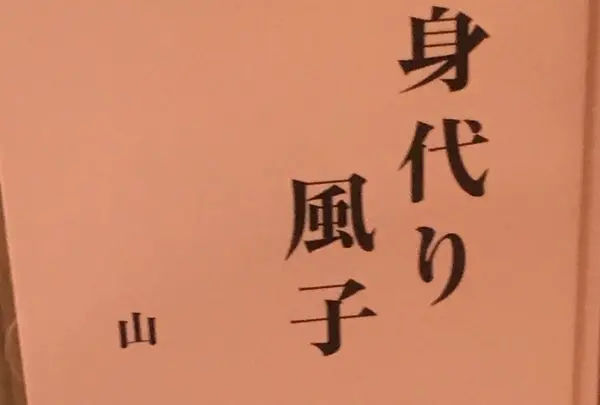 身代り
風子
山